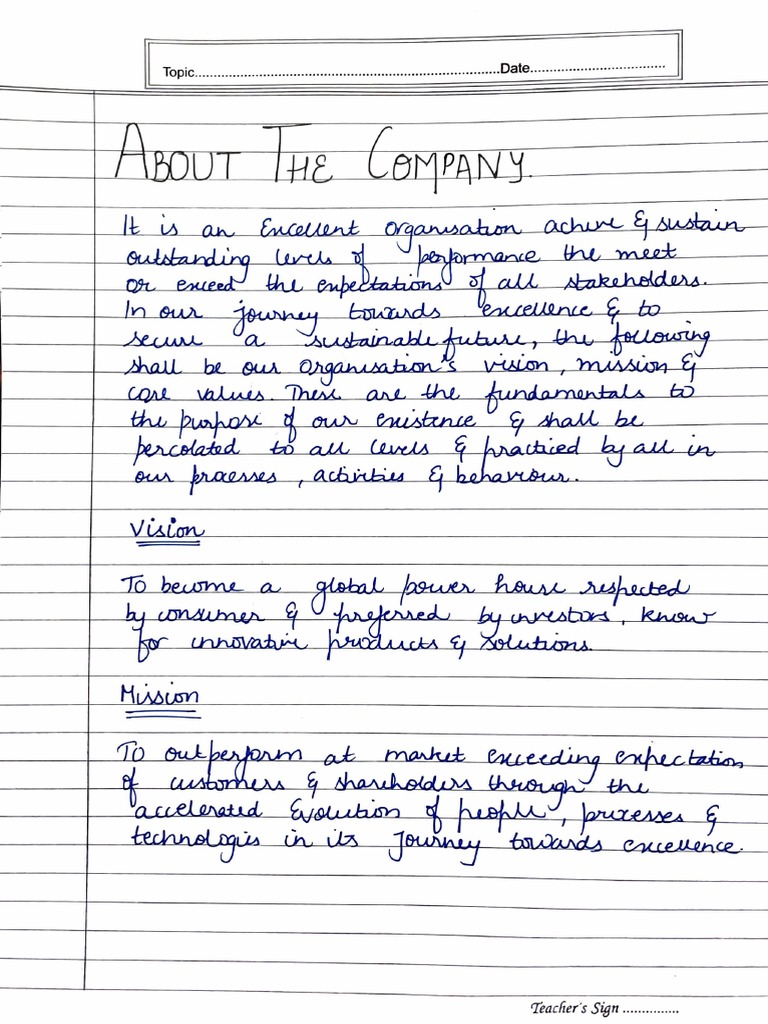 Topic..........................................................................Date.................................
ABOUT THE COMPANY.
It is an Excellent organisation achive & sustain
outstanding levels of performance the meet
or exceed the expectations of all stakeholders.
In our journey towards excellence & to
secure a sustainable future, the following
shall be our organisation's vision, mission &
core values. These are the fundamentals to
the purpose of our existence & shall be
percolated to all levels & practiced by all in
our processes, activities & behaviour.
Vision
To become a global power house respected
by consumer & preferred by investors, know
for innovative products & solutions.
Mission
To outperform at market exceeding expectation
of customers & shareholders through the
accelerated Evolution of people, processes &
technologies in its Journey towards excellence.
Teacher's Sign ...............